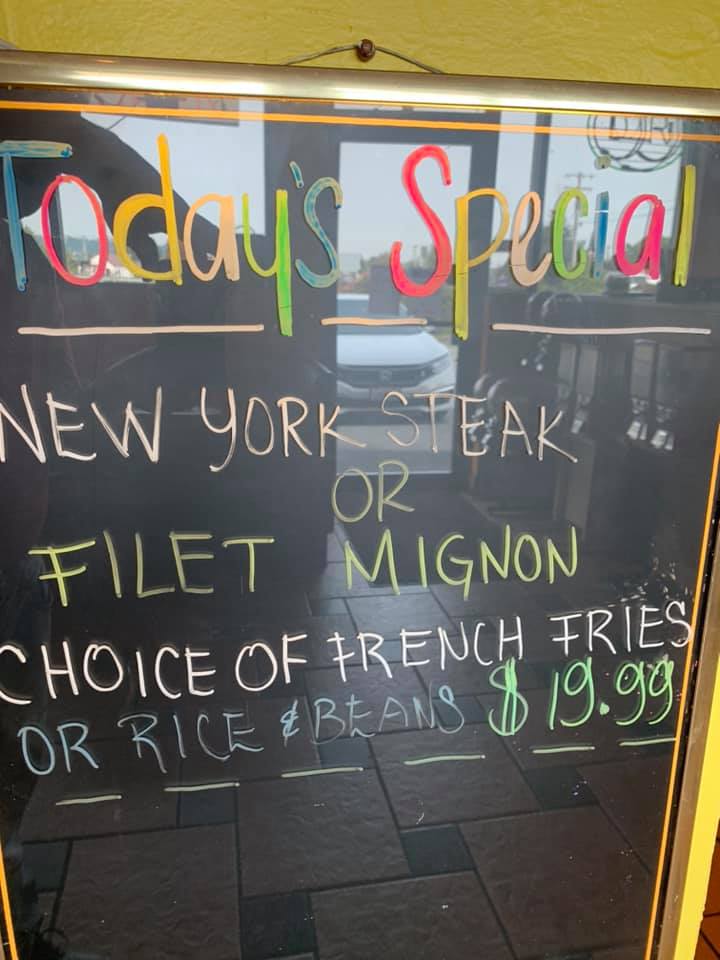 Today's Special
NEW YORK STEAK
OR
FILET MIGNON
CHOICE OF FRENCH FRIES
OR RICE & BEANS $19.99